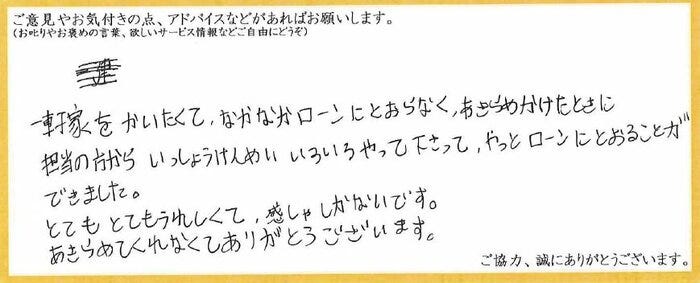 ご意見やお気付きの点、アドバイスなどがあればお願いします。
(お叱りやお褒めの言葉、欲しいサービス情報などご自由にどうぞ)
一軒家をかいたくて、なかなかローンにとおらなく、あきらめかけたときに
担当の方から いっしょうけんめい いろいろやって下さって、やっとローンにとおることが
できました。
とても とてもうれしくて、感しゃしかないです。
あきらめてくれなくてありがとうございます。
ご協力、誠にありがとうございます。